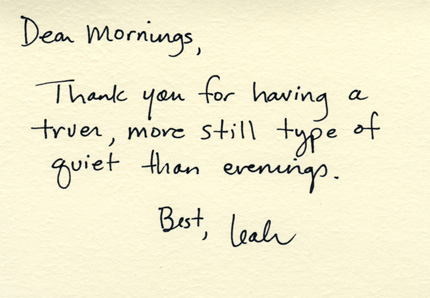 Dear Mornings,
Thank you for having a
truer, more still type of
quiet than evenings.
Best, Leah